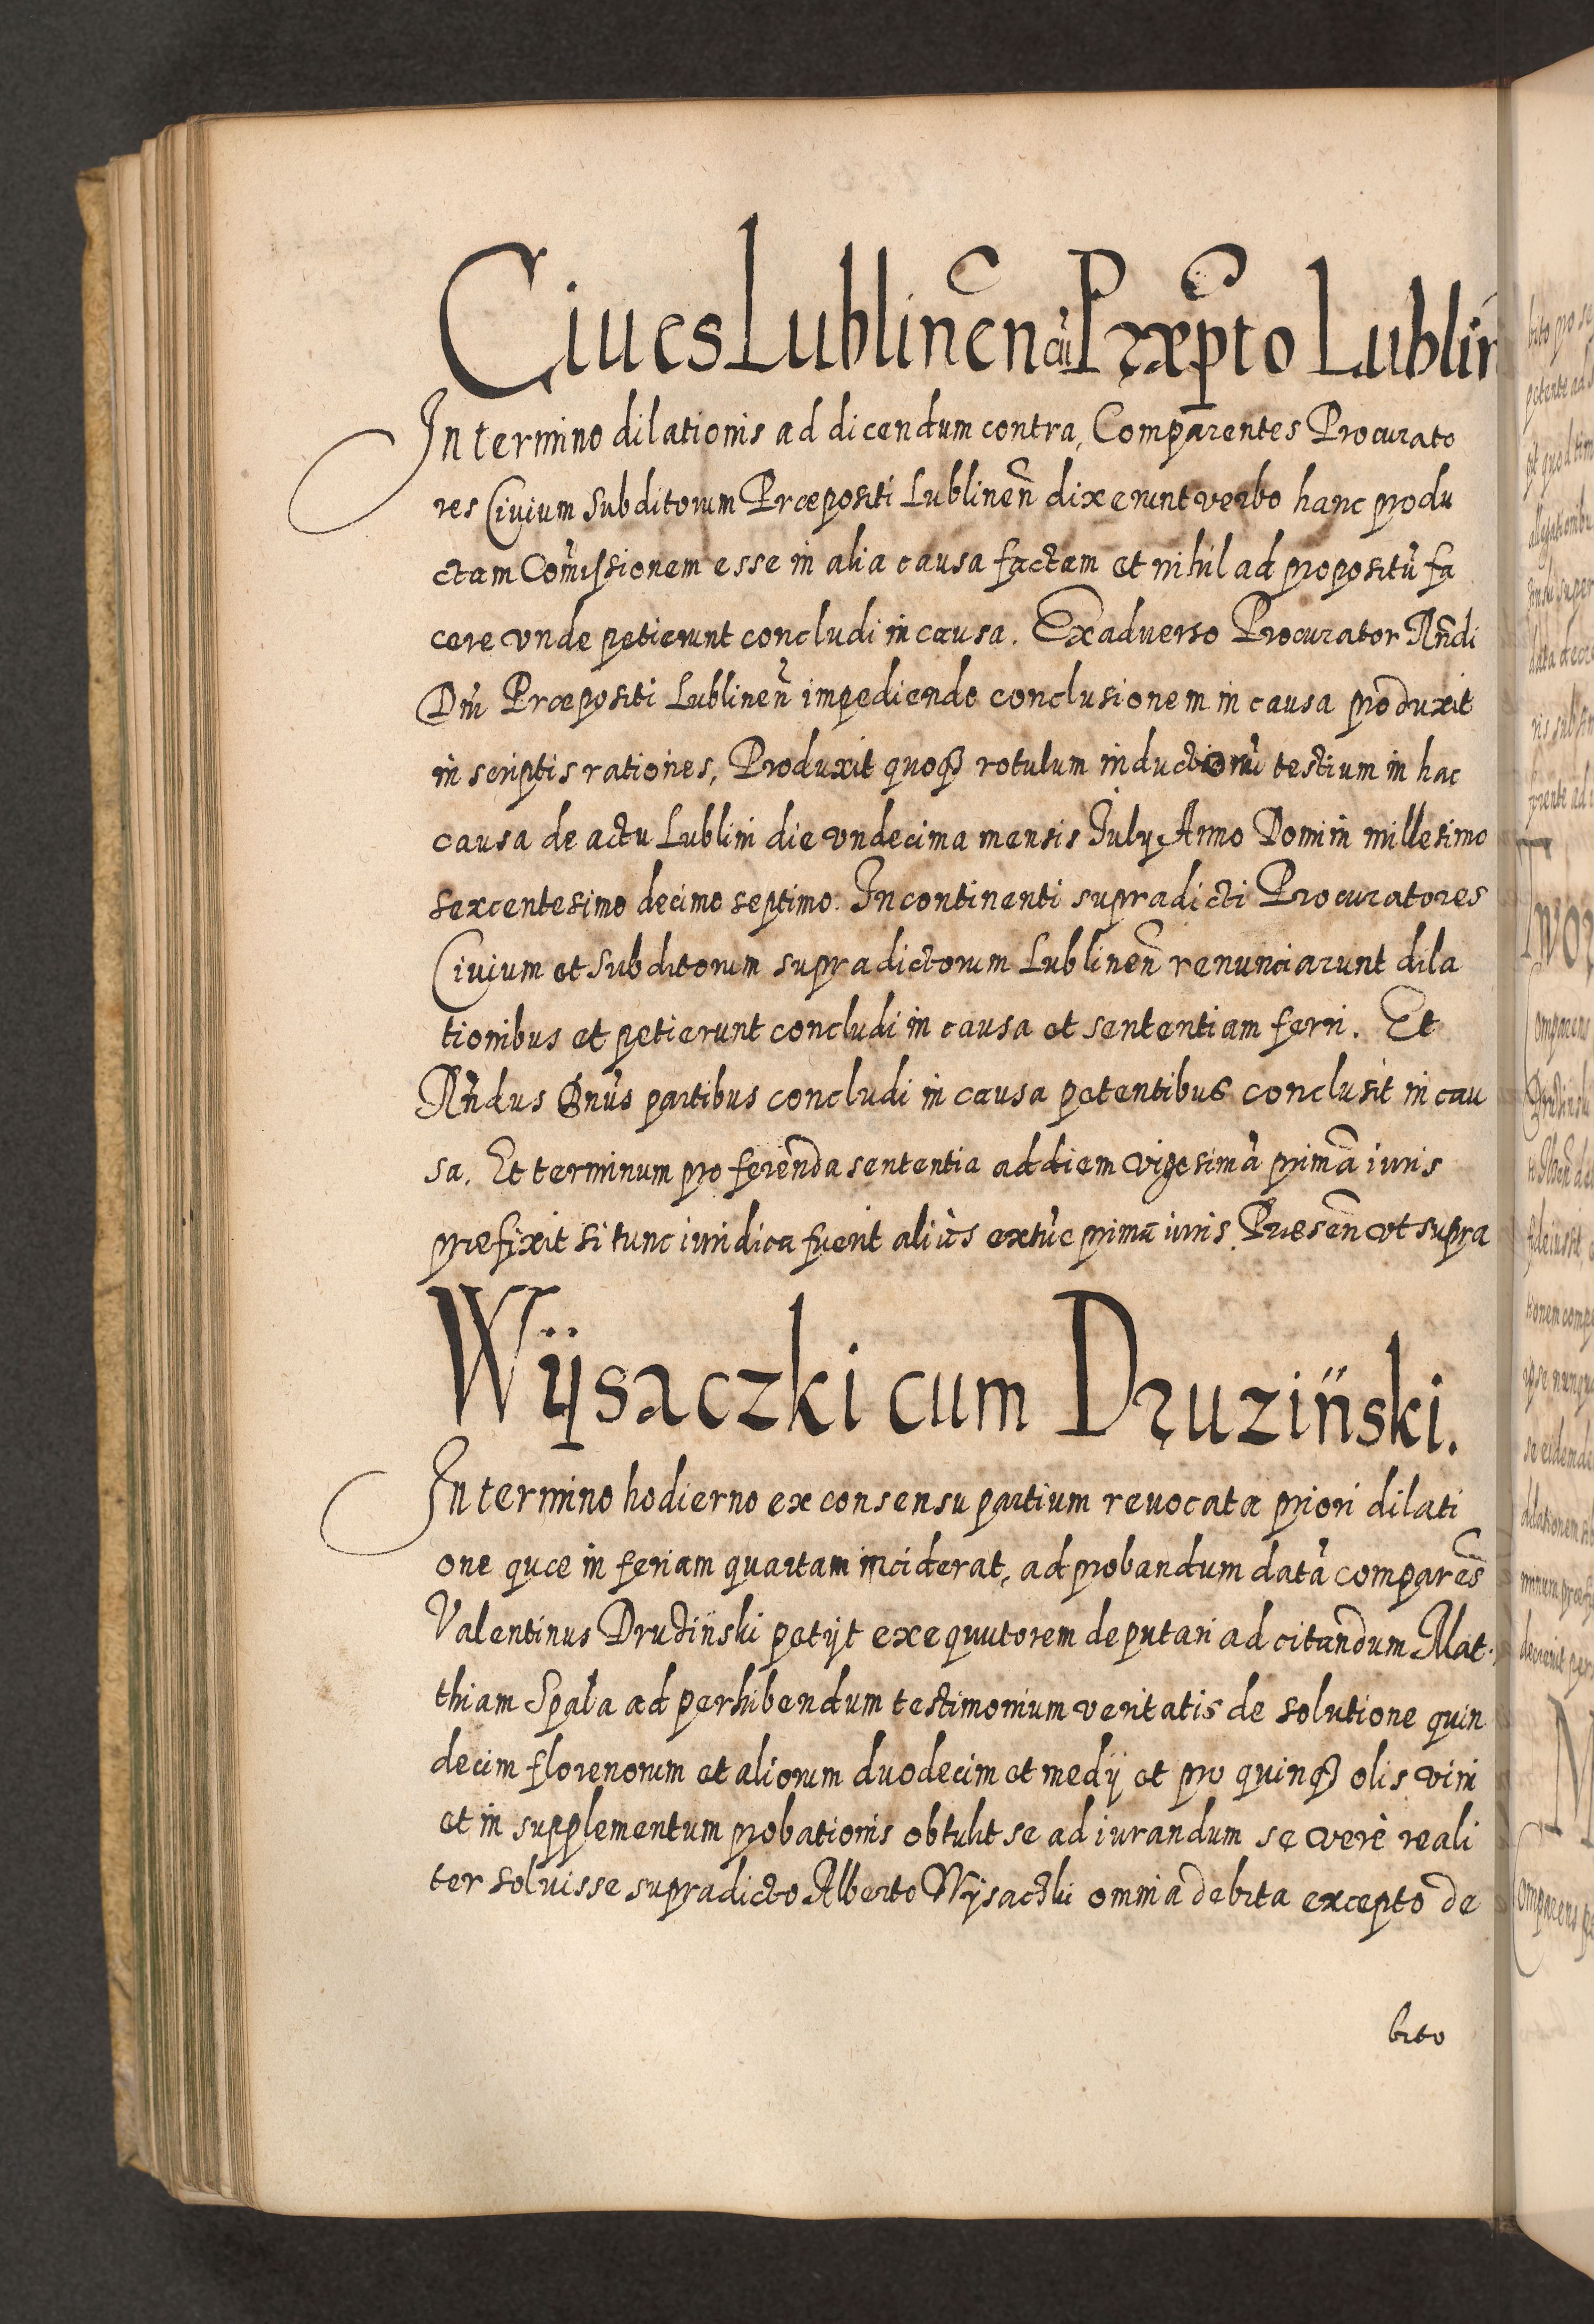 Ciues Lublinẽn cũ Præp̃to Lublin
In termino dilationis ad dicendum contra, Comparentes Procurato
res Ciuium Subditorum Præpositi Lublineñ dixerunt verbo hanc produ
ctam Com̃issionem esse in alia causa factam et nihil ad propositũ fa
cere vnde petierunt concludi in causa. Ex aduerso Procurator Rñdi
Dñi Præpositi Lublineñ impediendo conclusionem in causa produxit
in scriptis rationes, Produxit quoqꝫ rotulum inductionũ testium in hac
causa de actu Lublini die vndecima mensis July Anno Domini millesimo
sexcentesimo decimo septimo. In continenti supradicti Procuratores
Ciuium et Subditorum supradictorum Lublineñ renunciarunt dila
tionibus et petierunt concludi in causa et sententiam ferri. Et
Rñdus Dñus partibus concludi in causa petentibus conclusit in cau
sa. Et terminum pro ferenda sententia ad diem vigesimã primã iuris
præfixit si tunc iuridica fuerit aliũs extũc primã iuris. Præseñ vt supra
Wÿsaczki cum Druzinski.
In termino hodierno ex consensu partium reuocata priori dilati
one quæ in feriam quartam inciderat, ad probandum datã compareñs
Valentinus Druzinski petijt exequutorem deputari ad citandum Mat
thiam Spała ad perhibendum testimonium veritatis de solutione quin
decim florenorum et aliorum duodecim et medij et pro quinqꝫ olis vini
et in supplementum probationis obtulit se ad iurandum se verè reali
ter soluisse supradicto Alberto Wÿsaczki omnia debita excepto de
bito